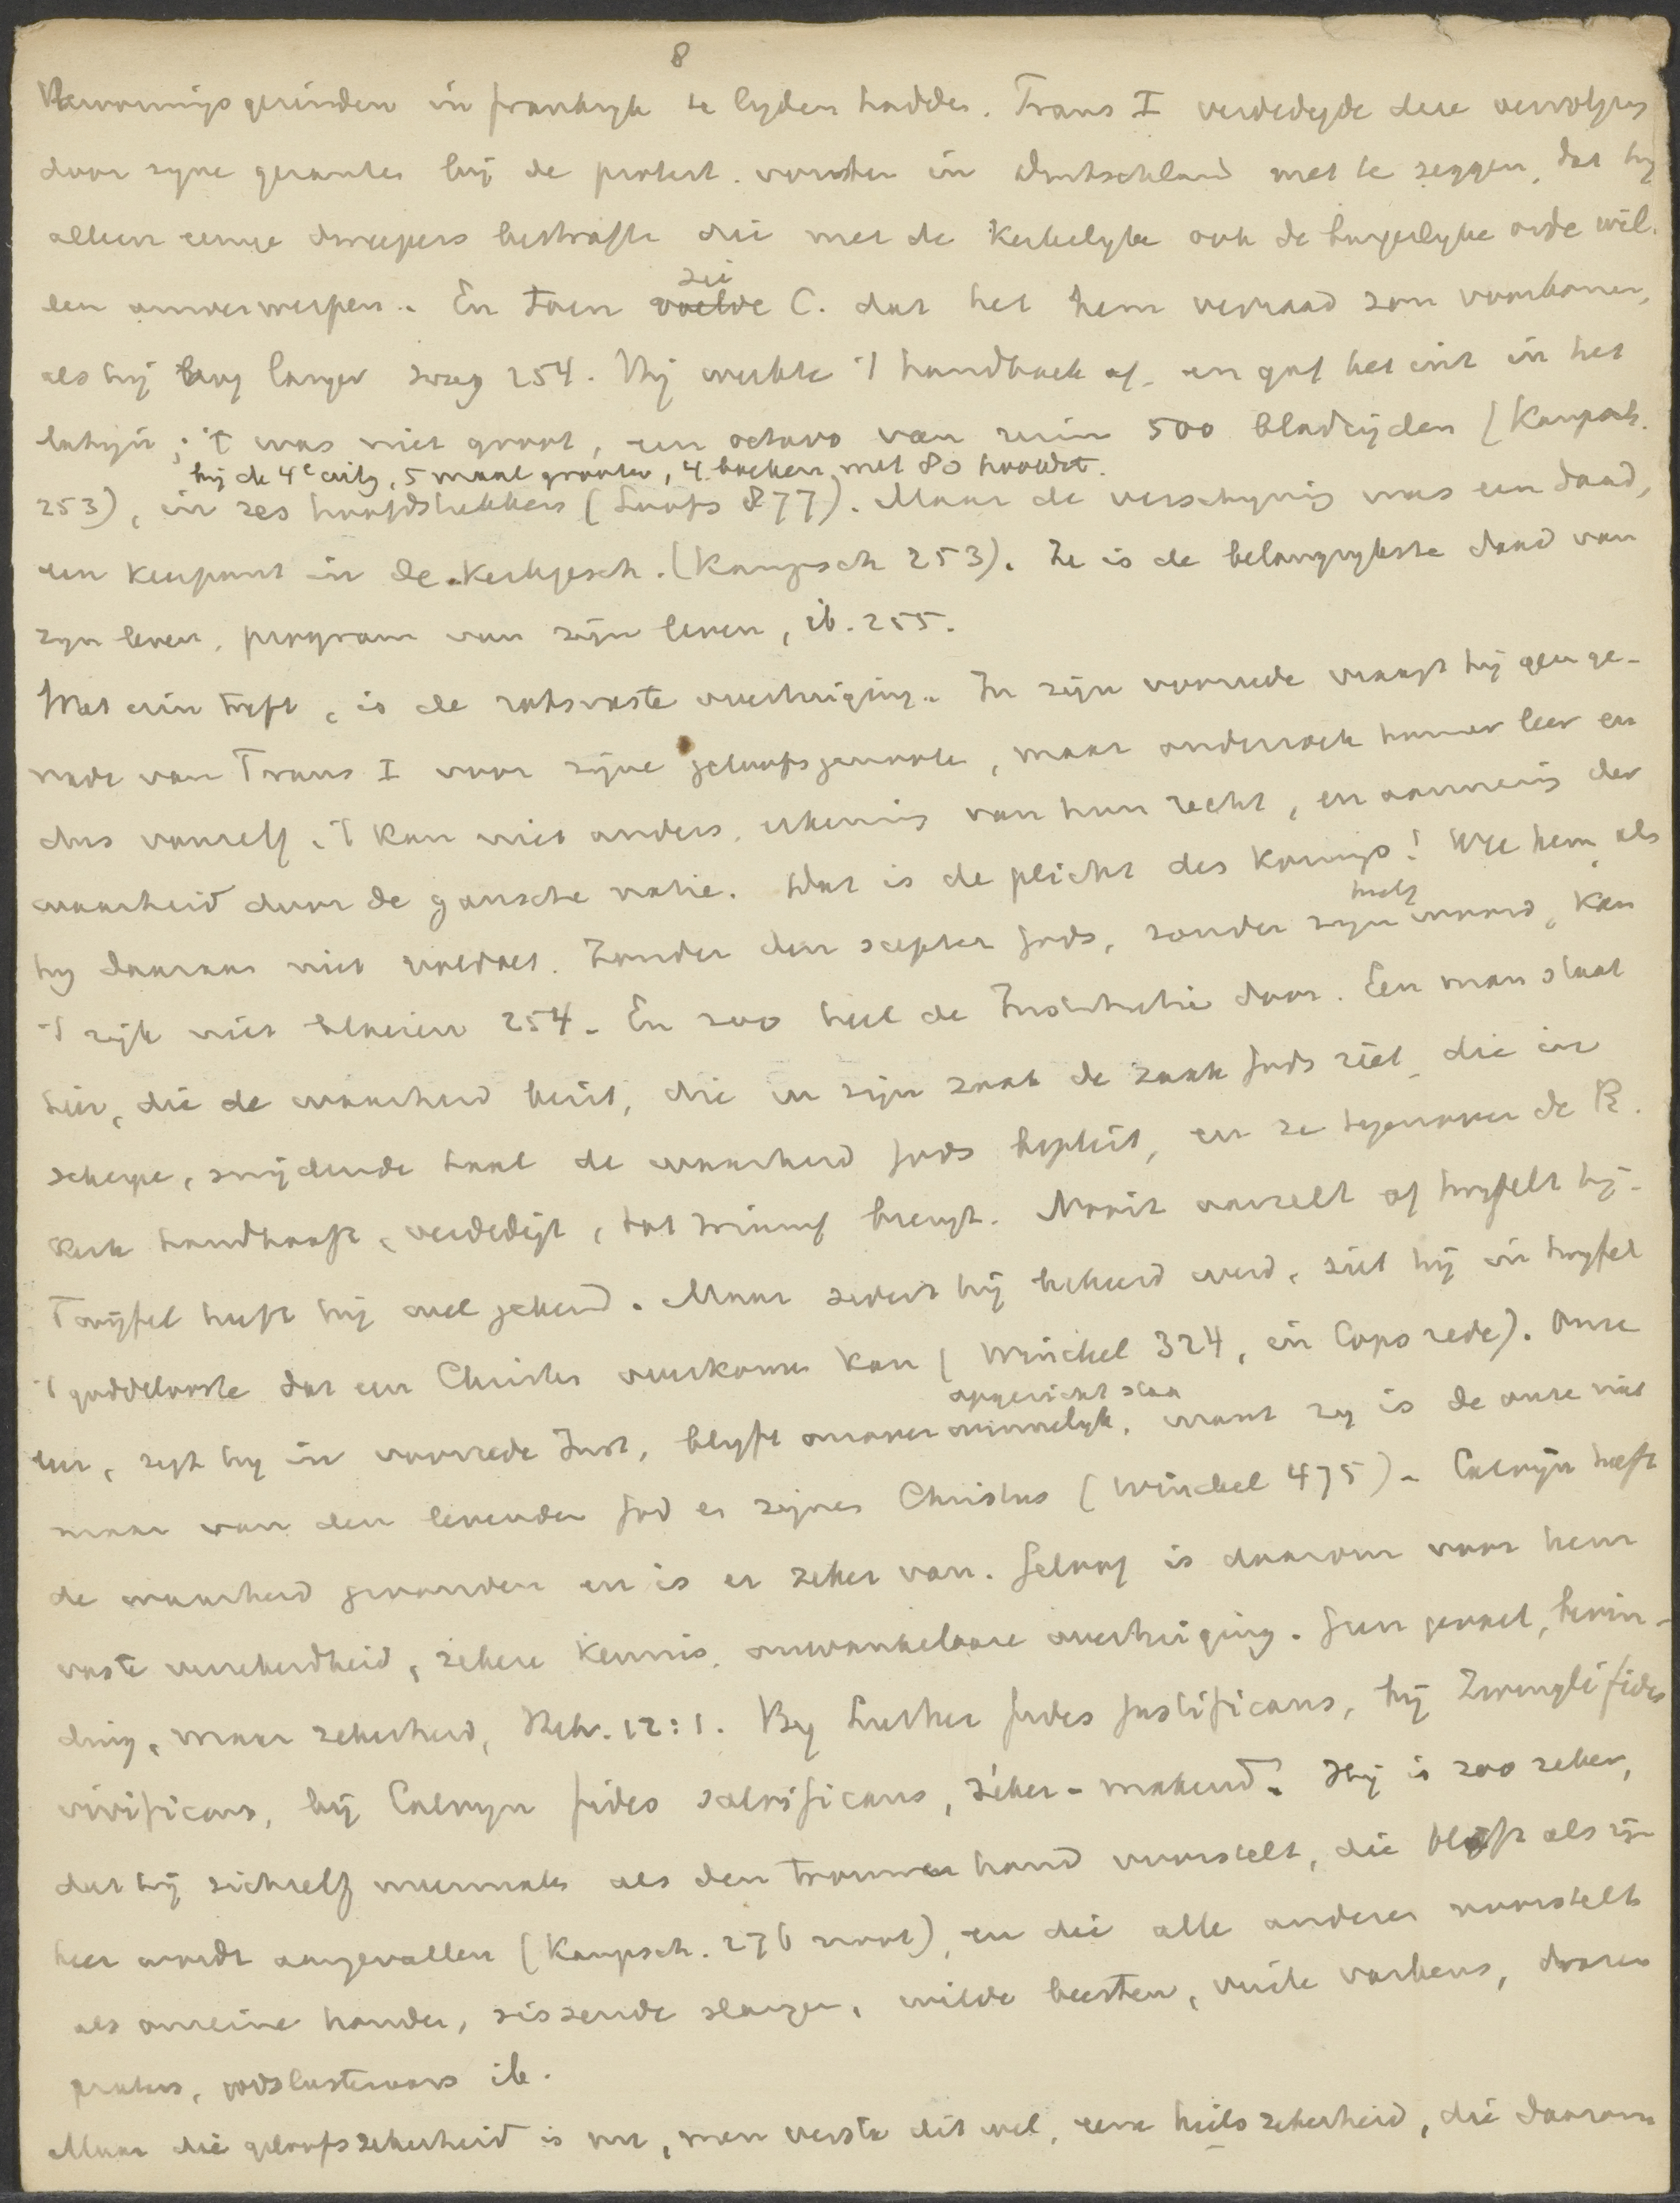 8
Hervormingsgezinden in frankryk te lyden hadden. Frans I verdedigde deze vervolging
door zyne gezanten bij de protest. vorsten in Duitschland met te zeggen, dat hy
alleen eenige dweepers bestrafte die met de Kerkelyke ook de burgerlyke orde wil-
len omverwerpen. En toen voelde zei C. dat het hem verraad zou voorkomen,
als hij nog langer zweeg 254. Hij werkte 't handboek af en gaf het uit in het
latijn; 't was niet groot, een octavo van ruim 500 bladzijden (Kampsch.
bij de 4e uitg. 5 maal grooter, 4 boeken met 80 hoofdst.
253), in zes hoofdstukken (Loofs 877). Maar de verschyning was een daad,
een keerpunt in de Kerkgesch. (Kampsch 253). Ze is de belangrykste daad van
zyn leven, program van zijn leven, ib. 255.
Wat erin treft, is de rotsvaste overtuiging. In zijn voorrede vraagt hij geen ge-
nade van Frans I voor zijne geloofsgenooten, maar onderzoek hunner leer en
dus vanzelf, 't kan niet anders, erkennis van hun recht, en aanneming der
waarheid door de gansche natie. Dat is de plicht des Konings! Wee hem als
hy daaraan niet voldoet. Zonder den scepter Gods, zonder zyn woord, kan
't rijk niet bloeien 254. En zoo heel de Institutie door. Een man staat
hier, die de waarheid bezit, die in zijn zaak de zaak Gods ziet, die in
scherpe, snijdende taal de waarheid Gods bepleit, en ze tegenover de R.
Kerk handhaaft, verdedigt, tot triumf brengt. Nooit aarzelt of twyfelt hij.
Twijfel heeft hij wel gekend. Maar sedert hij bekeerd werd, ziet hij in twyfel
't goddelooste dat een Christen overkomen kan (Winckel 324, in Cops rede). Onze
leer, zegt hy in voorrede Inst, blyft onoverwinnelyk opgericht staan, want zy is de onze niet
maar van den levenden God en zijnen Christus (Winckel 475). Calvijn heeft
de waarheid gevonden en is er zeker van. Geloof is daarom voor hem
vaste verzekerdheid, zekere kennis, onwankelbare overtuiging. Geen gevoel, bevin-
ding, maar zekerheid, Hebr. 12:1. By Luther fides justificans, bij Zwingli fides
vivificans, bij Calvyn fides salvificans, zéker-makend. Hij is zoo zeker,
dat hij zichzelf meermalen als den trouwen hond voorstelt, die blaft als zijn
heer wordt aangevallen (Kampsch. 276 noot), en die alle anderen voorstelt
als onreine honden, sissende slangen, wilde beesten, vuile varkens, dwazen
praters, godslasteraars ib.
Maar die geloofszekerheid is nu, men versta dit wel, eene heilszekerheid, die daarom